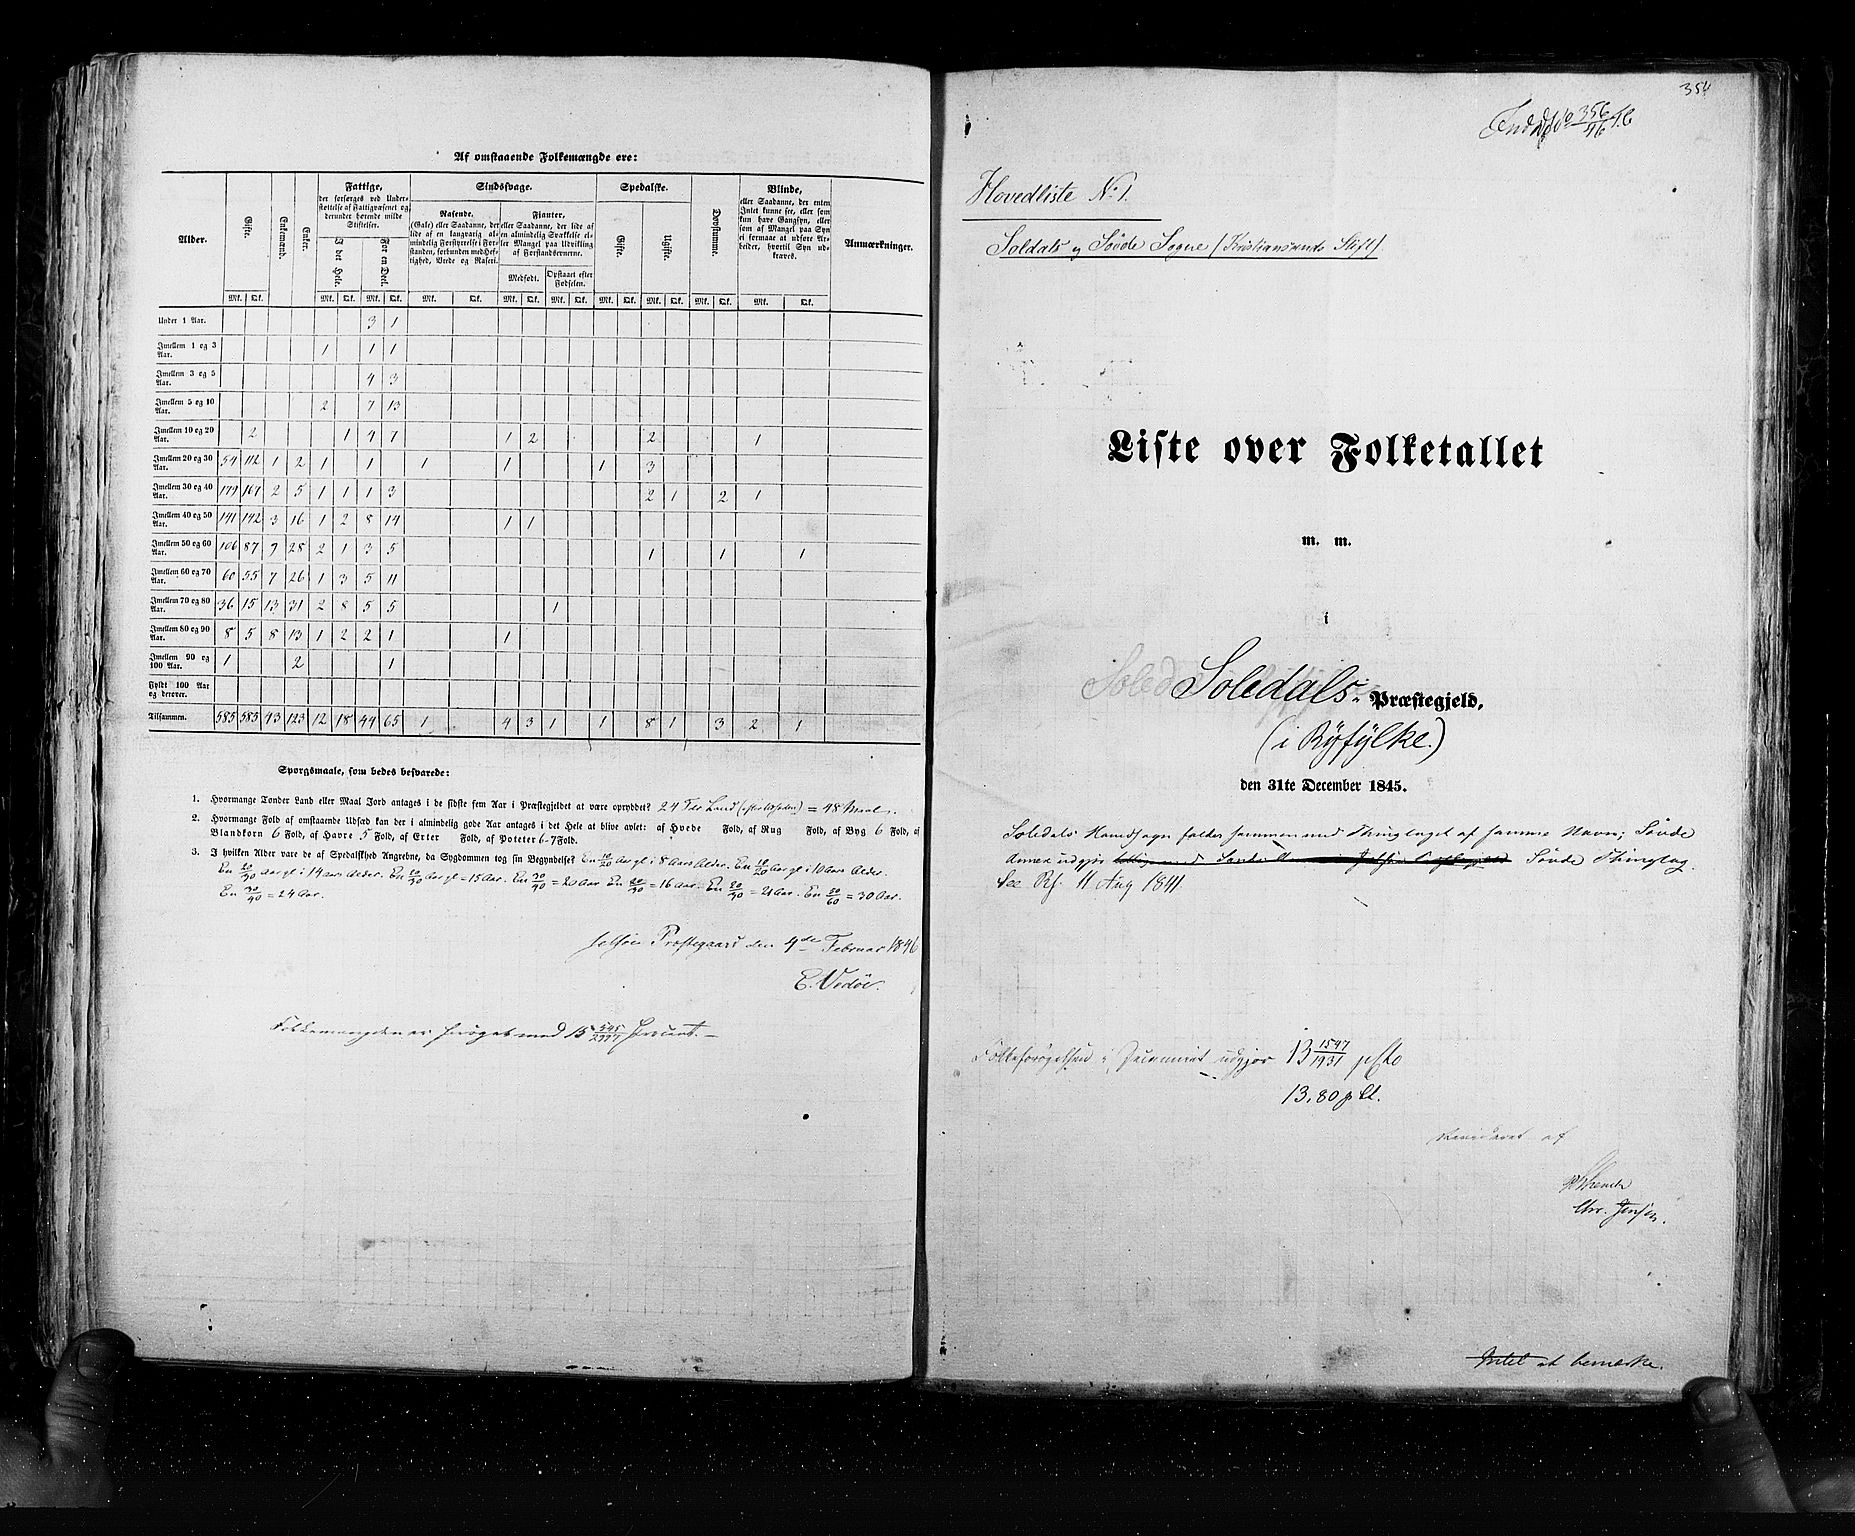 Af omstaaende Folkemængde ere:
Alder. Gifte. Enkemænd. Enker. Fattige, der forsørges ved Understøttelse af Fattigvæsenet og derunder hørende milde Stiftelser. I det Hele. For en Deel. Sindssvage. Rasende. (Gale) eller Saadanne, der lide af en langvarig almindelig Forstyrrelse i Forstanden, forbunden med Heftighed, Vrede og Raseri. Fjanter, eller Saadanne, der lide af en almindelig Svækkelse eller Mangel paa Udvikling af Forstandsevnerne. Medfødt. Opstaaet efter Fødselen. Spedalske. Gifte. Ugifte. Døvstumme. Blinde, eller Saadanne, der enten Intet kunne see, eller som kun have Gangsyn, eller som af Mangel paa Syn ei formaae at udføre Arbeider, hvortil Syn udkræves. Anmærkninger.
Mk. Qk. Mk. Qk. Mk. Qk. Mk. Qk. Mk. Qk. Mk. Qk. Mk. Qk. Mk. Qk. Mk. Qk. Mk. Qk.
Under 1 Aar. 3 1
Imellem 1 og 3 Aar. 1 1 1
Imellem 3 og 5 Aar. 4 3
Imellem 5 og 10 Aar. 2 7 13
Imellem 10 og 20 Aar. 2 1 4 7 1 2 2 1
Imellem 20 og 30 Aar. 54 112 1 2 1 1 1 1 1 3
Imellem 30 og 40 Aar. 179 167 2 5 1 1 1 3 2 1 2 1
Imellem 40 og 50 Aar. 141 142 3 16 1 2 8 14 1 1
Imellem 50 og 60 Aar. 106 87 9 28 2 1 3 5 1 1 1
Imellem 60 og 70 Aar. 60 55 7 26 1 3 5 11
Imellem 70 og 80 Aar. 36 15 13 31 2 8 5 5 1
Imellem 80 og 90 Aar. 8 5 8 13 1 2 2 1 1
Imellem 90 og 100 Aar. 1 2 1
Fyldt 100 Aar og derover.
Tilsammen. 585 585 43 123 12 18 44 65 1 4 3 1 1 8 1 3 2 1
Spørgsmaale, som bedes besvarede:
1. Hvormange Tønder Land eller Maal Jord antages i de sidste fem Aar i Præstegjeldet at være opryddet? 24 Tdr Land = 48 Maal.
2. Hvormange Fold af omstaaende Udsæd kan der i almindelig gode Aar antages i det Hele at blive avlet: af Hvede Fold, af Rug Fold, af Byg 6 Fold, af
Blandkorn 6 Fold, af Havre 5 Fold, af Erter Fold, af Poteter 6-7 Fold.
3. I hvilken Alder vare de af Spedalskhed Angrebne, da Sygdommen tog sin Begyndelse? En 10/20 Aar gl i 8 Aars Alder. En 10/20 Aar gl i 10 Aars Alder.
En 20/30 Aar gl i 14 Aars Alder. En 20/30 Aar gl = 15 Aar. En 30/40 = 20 Aar En 20/30 = 16 Aar. En 30/40 = 21 Aar. En 50/60 = 30 Aar.
En 30/40 = 24 Aar.
Jelsøe Præstegaard den 4de Februar 1846
E. Vedøe.
Folkemængden er forøget med 15 Procent.
354
356
Hovedliste No 1.
Soldals og Søvde Sogne (Kristiansands Stift).
Liste over Folketallet
m. m.
i
Soledals Præstegjeld,
(i Ryfylke.)
den 31te December 1845.
Soledals Hovedsogn falder sammen med Thinglaget af samme Navn; Søvde
Annex udgjør Søvde Thinglag.
See Rs. 11 Aug 1841.
Folkeforøgelsen i Decenniet udgjør 13 1547/1931 pCto
13.80 pCt.
Revideret af
Chr. Jensen.
Intet at bemærke.